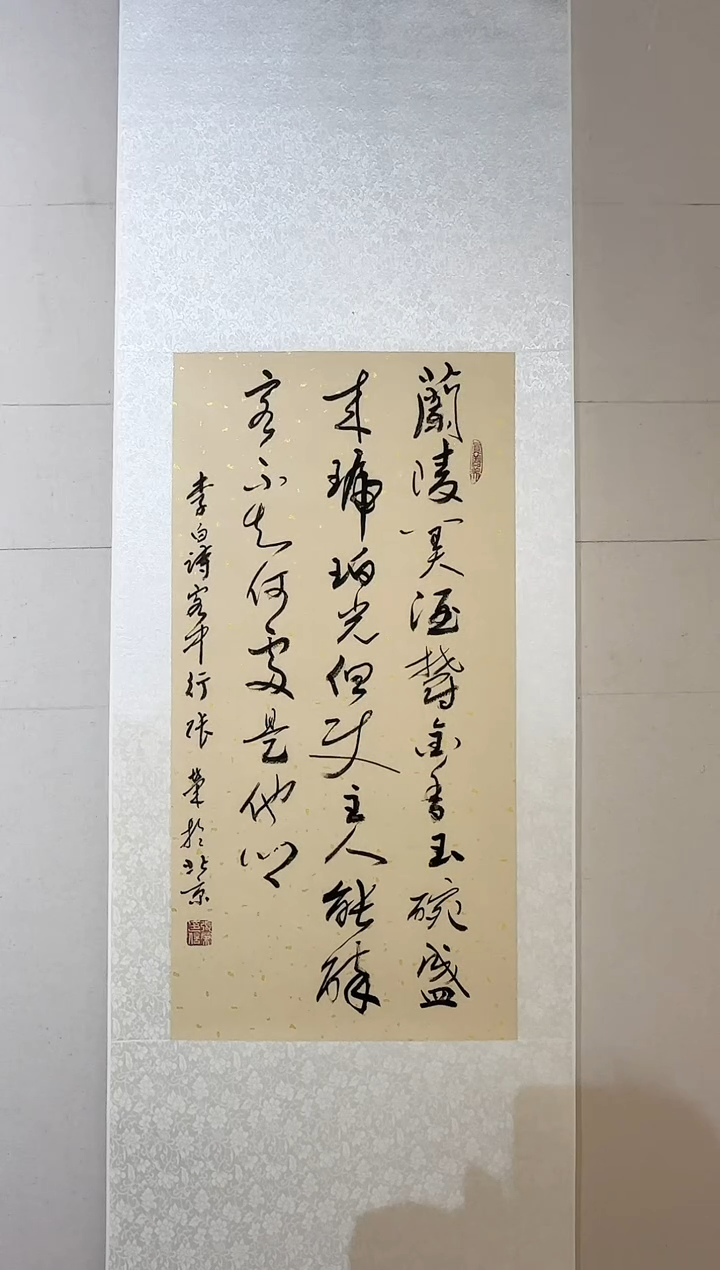 蘭陵美酒鬱金香玉碗盛
来琥珀光但使主人能醉
客不知何處是他鄉
李白詩客中行張榮於北京